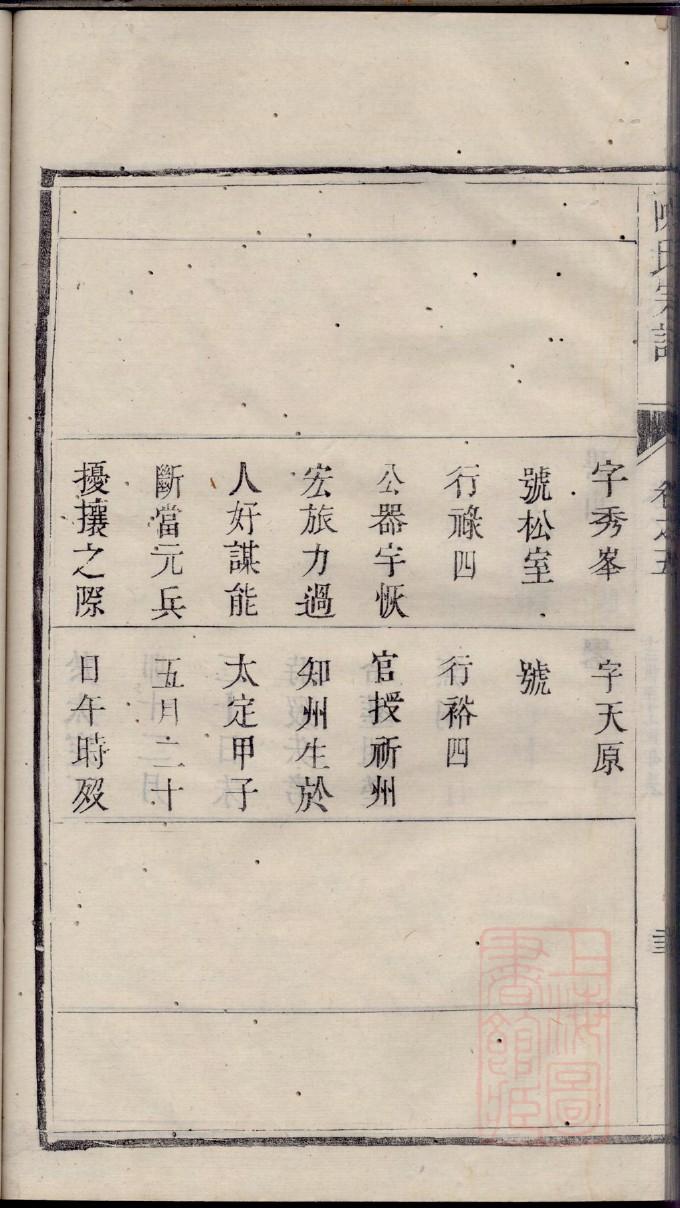 陳氏宗譜
卷之五
字秀峯
號松室
行祿四
公器宇恢
宏旅力過
人好謀能
斷當元兵
擾攘之際
字天原
號
行裕四
官授祈州
知州生於
太定甲子
五月二十
日午時歿
上海圖
書館藏